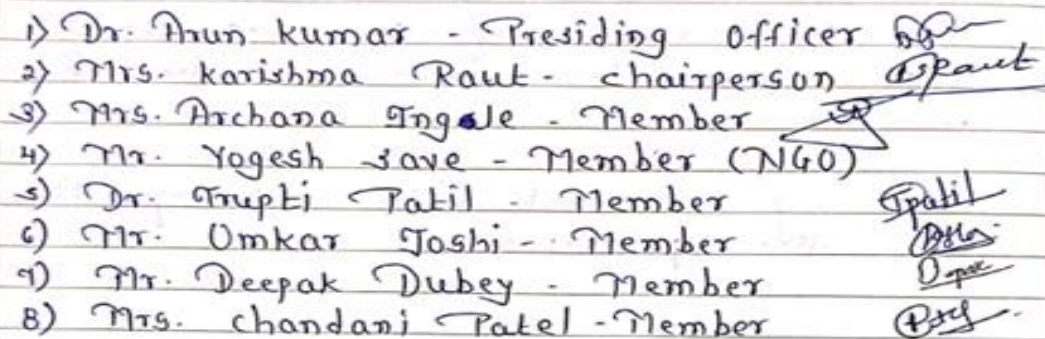 1) Dr. Arun kumar - Presiding Officer
2) Mrs. karishma Raut - chairperson
3) Mrs. Archana Ingale - Member
4) Mr. Yogesh Save - Member (NGO)
5) Dr. Trupti Patil - Member Tpatil
6) Mr. Omkar Joshi - Member
7) Mr. Deepak Dubey - Member
8) Mrs. chandani Patel - Member